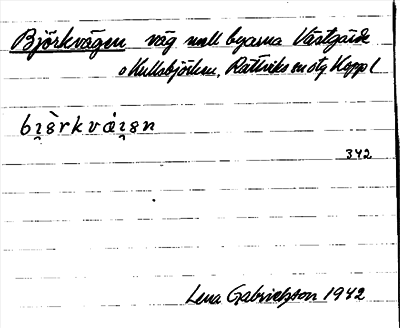 Björkvägen väg mell byarna Västgärde
o Kullsbjörken, Rättviks en otg Kopp l
bi̯ȣ̀rkvái̯ȣn
342
Lena Gabrielsson 1942